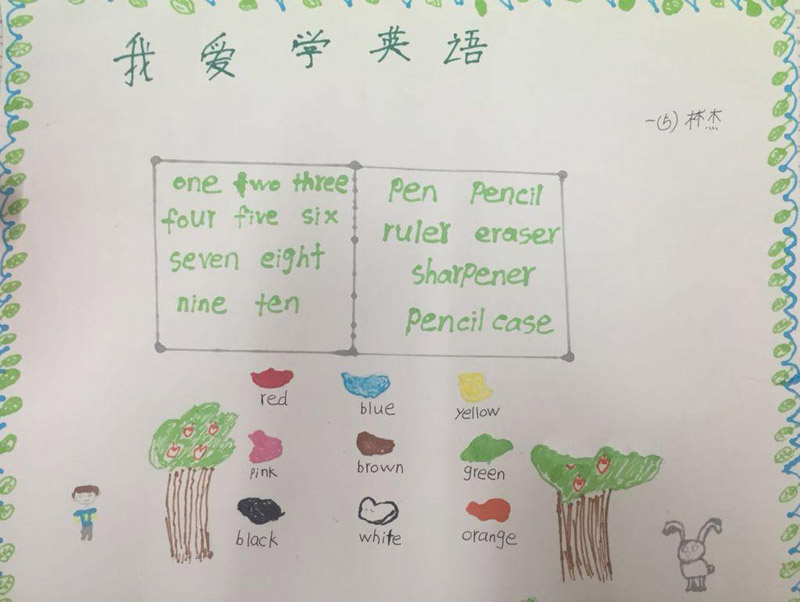 我爱学英语
一(5) 林杰
one two three
four five six
seven eight
nine ten
pen pencil
ruler eraser
sharpener
pencil case
red blue yellow
pink brown green
black white orange